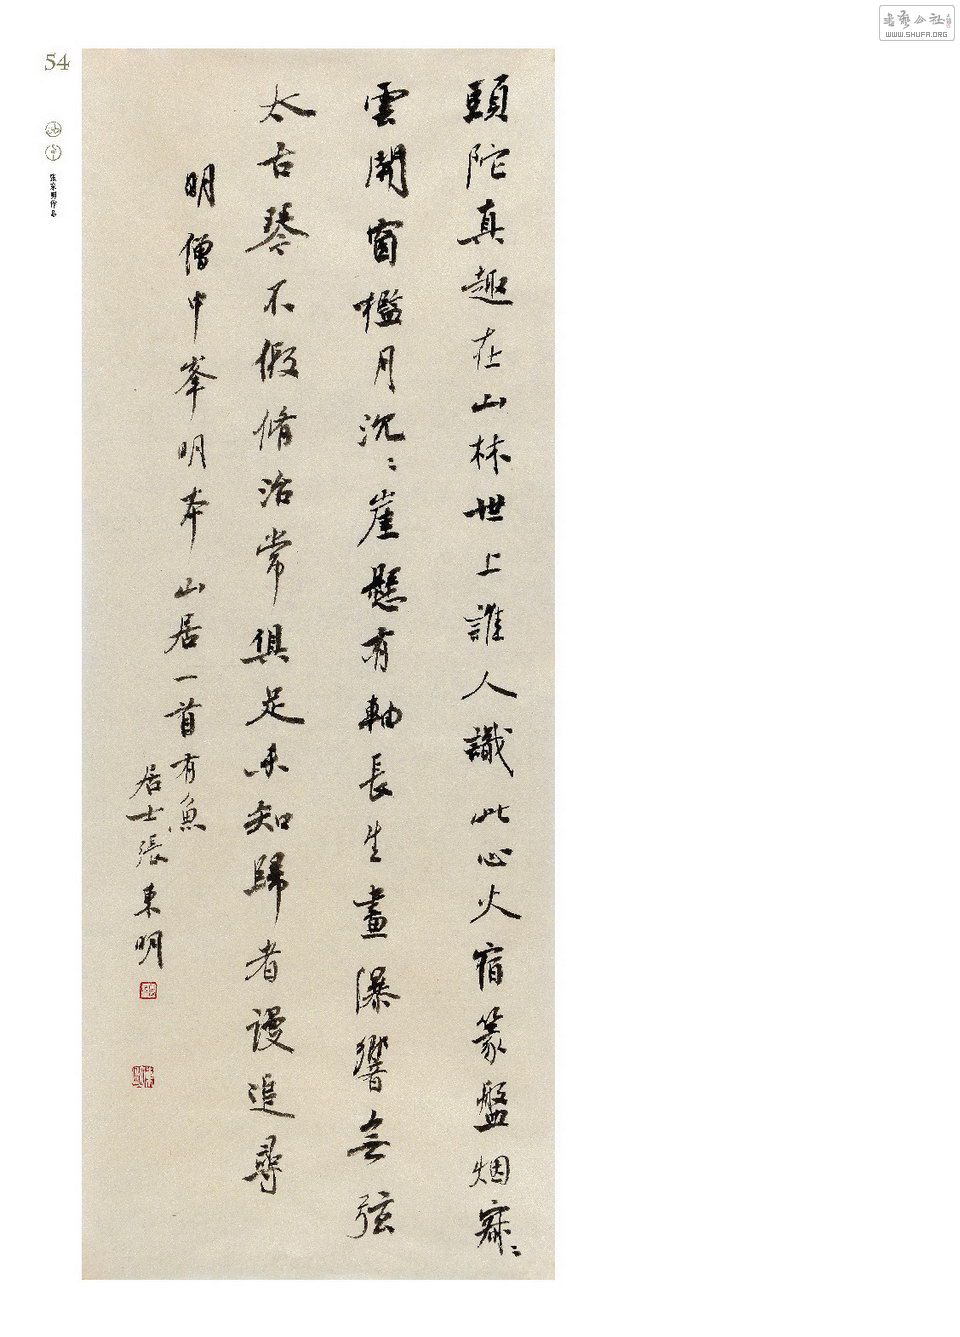 頭陀真趣在山林世上誰人識此心火宿篆盤烟寂〻
雲開窗檻月沉〻崖懸有軸長生畫瀑響無弦
太古琴不假脩治常俱足未知歸者謾追尋
明僧中峯明本山居一首有魚
居士張東明
54
WWW.SHUFA.ORG